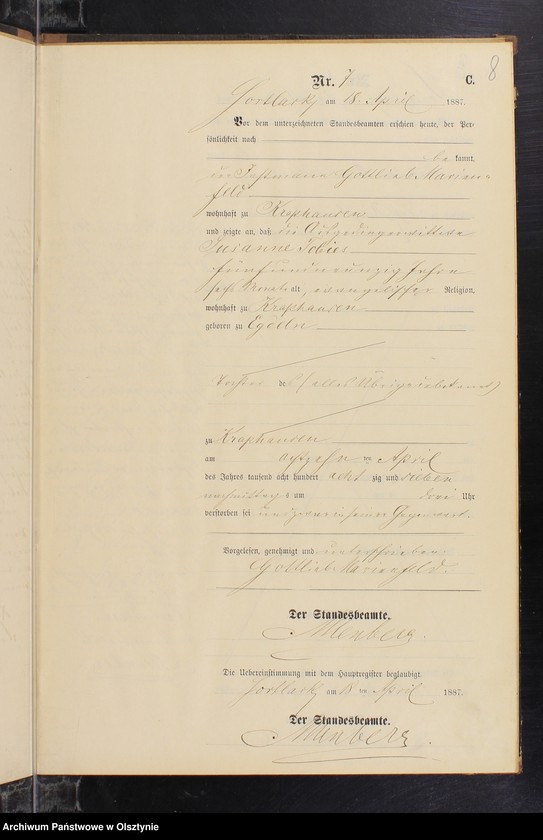 8
Nr. 7 C.
Jortlack am 18. April 1887.
Vor dem unterzeichneten Standesbeamten erschien heute, der Per-
sönlichkeit nach
be kannt,
Gottlieb Marien-
feld
wohnhaft zu Kraphausen
und zeigte an, daß die Altsitzerwittwe
Susanne Tobies
fünfundneunzig Jahre
sechs Monate alt, evangelischer Religion,
wohnhaft zu Kraphausen
geboren zu Egdeln
Tochter (alles Übrige unbekannt)
zu Kraphausen
am achtzehn ten April
des Jahres tausend acht hundert acht zig und sieben
nachmittags um drei Uhr
verstorben sei und zwar in seiner Gegenwart.
Vorgelesen, genehmigt und unterschrieben
Gottlieb Marienfeld.
Der Standesbeamte.
Allenberg.
Die Uebereinstimmung mit dem Hauptregister beglaubigt.
Jortlack am 18 ten April 1887.
Der Standesbeamte.
Allenberg.
Archiwum Państwowe w Olsztynie